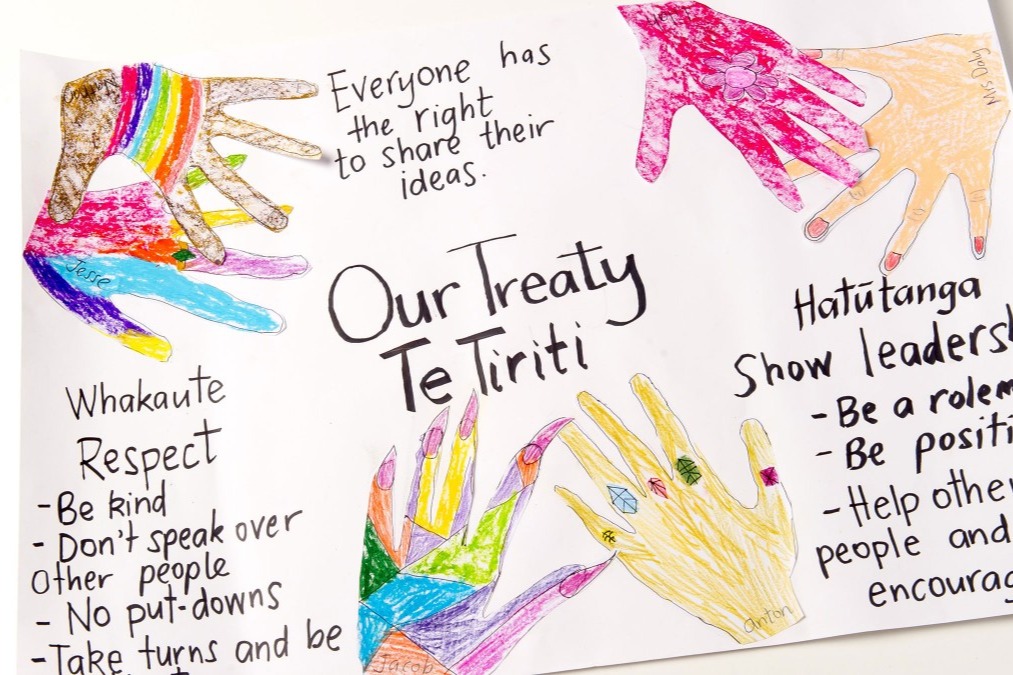 Everyone has
the right
to share their
ideas.
Miss Daly
Our Treaty
Te Tiriti
Jesse
Whakaute
Respect
-Be kind
- Don't speak over
Other people
- No put-downs
-Take turns and be
Hatūtanga
Show leaders
- Be a role
- Be positi
- Help othe
people and
encourag
Jacob
anton